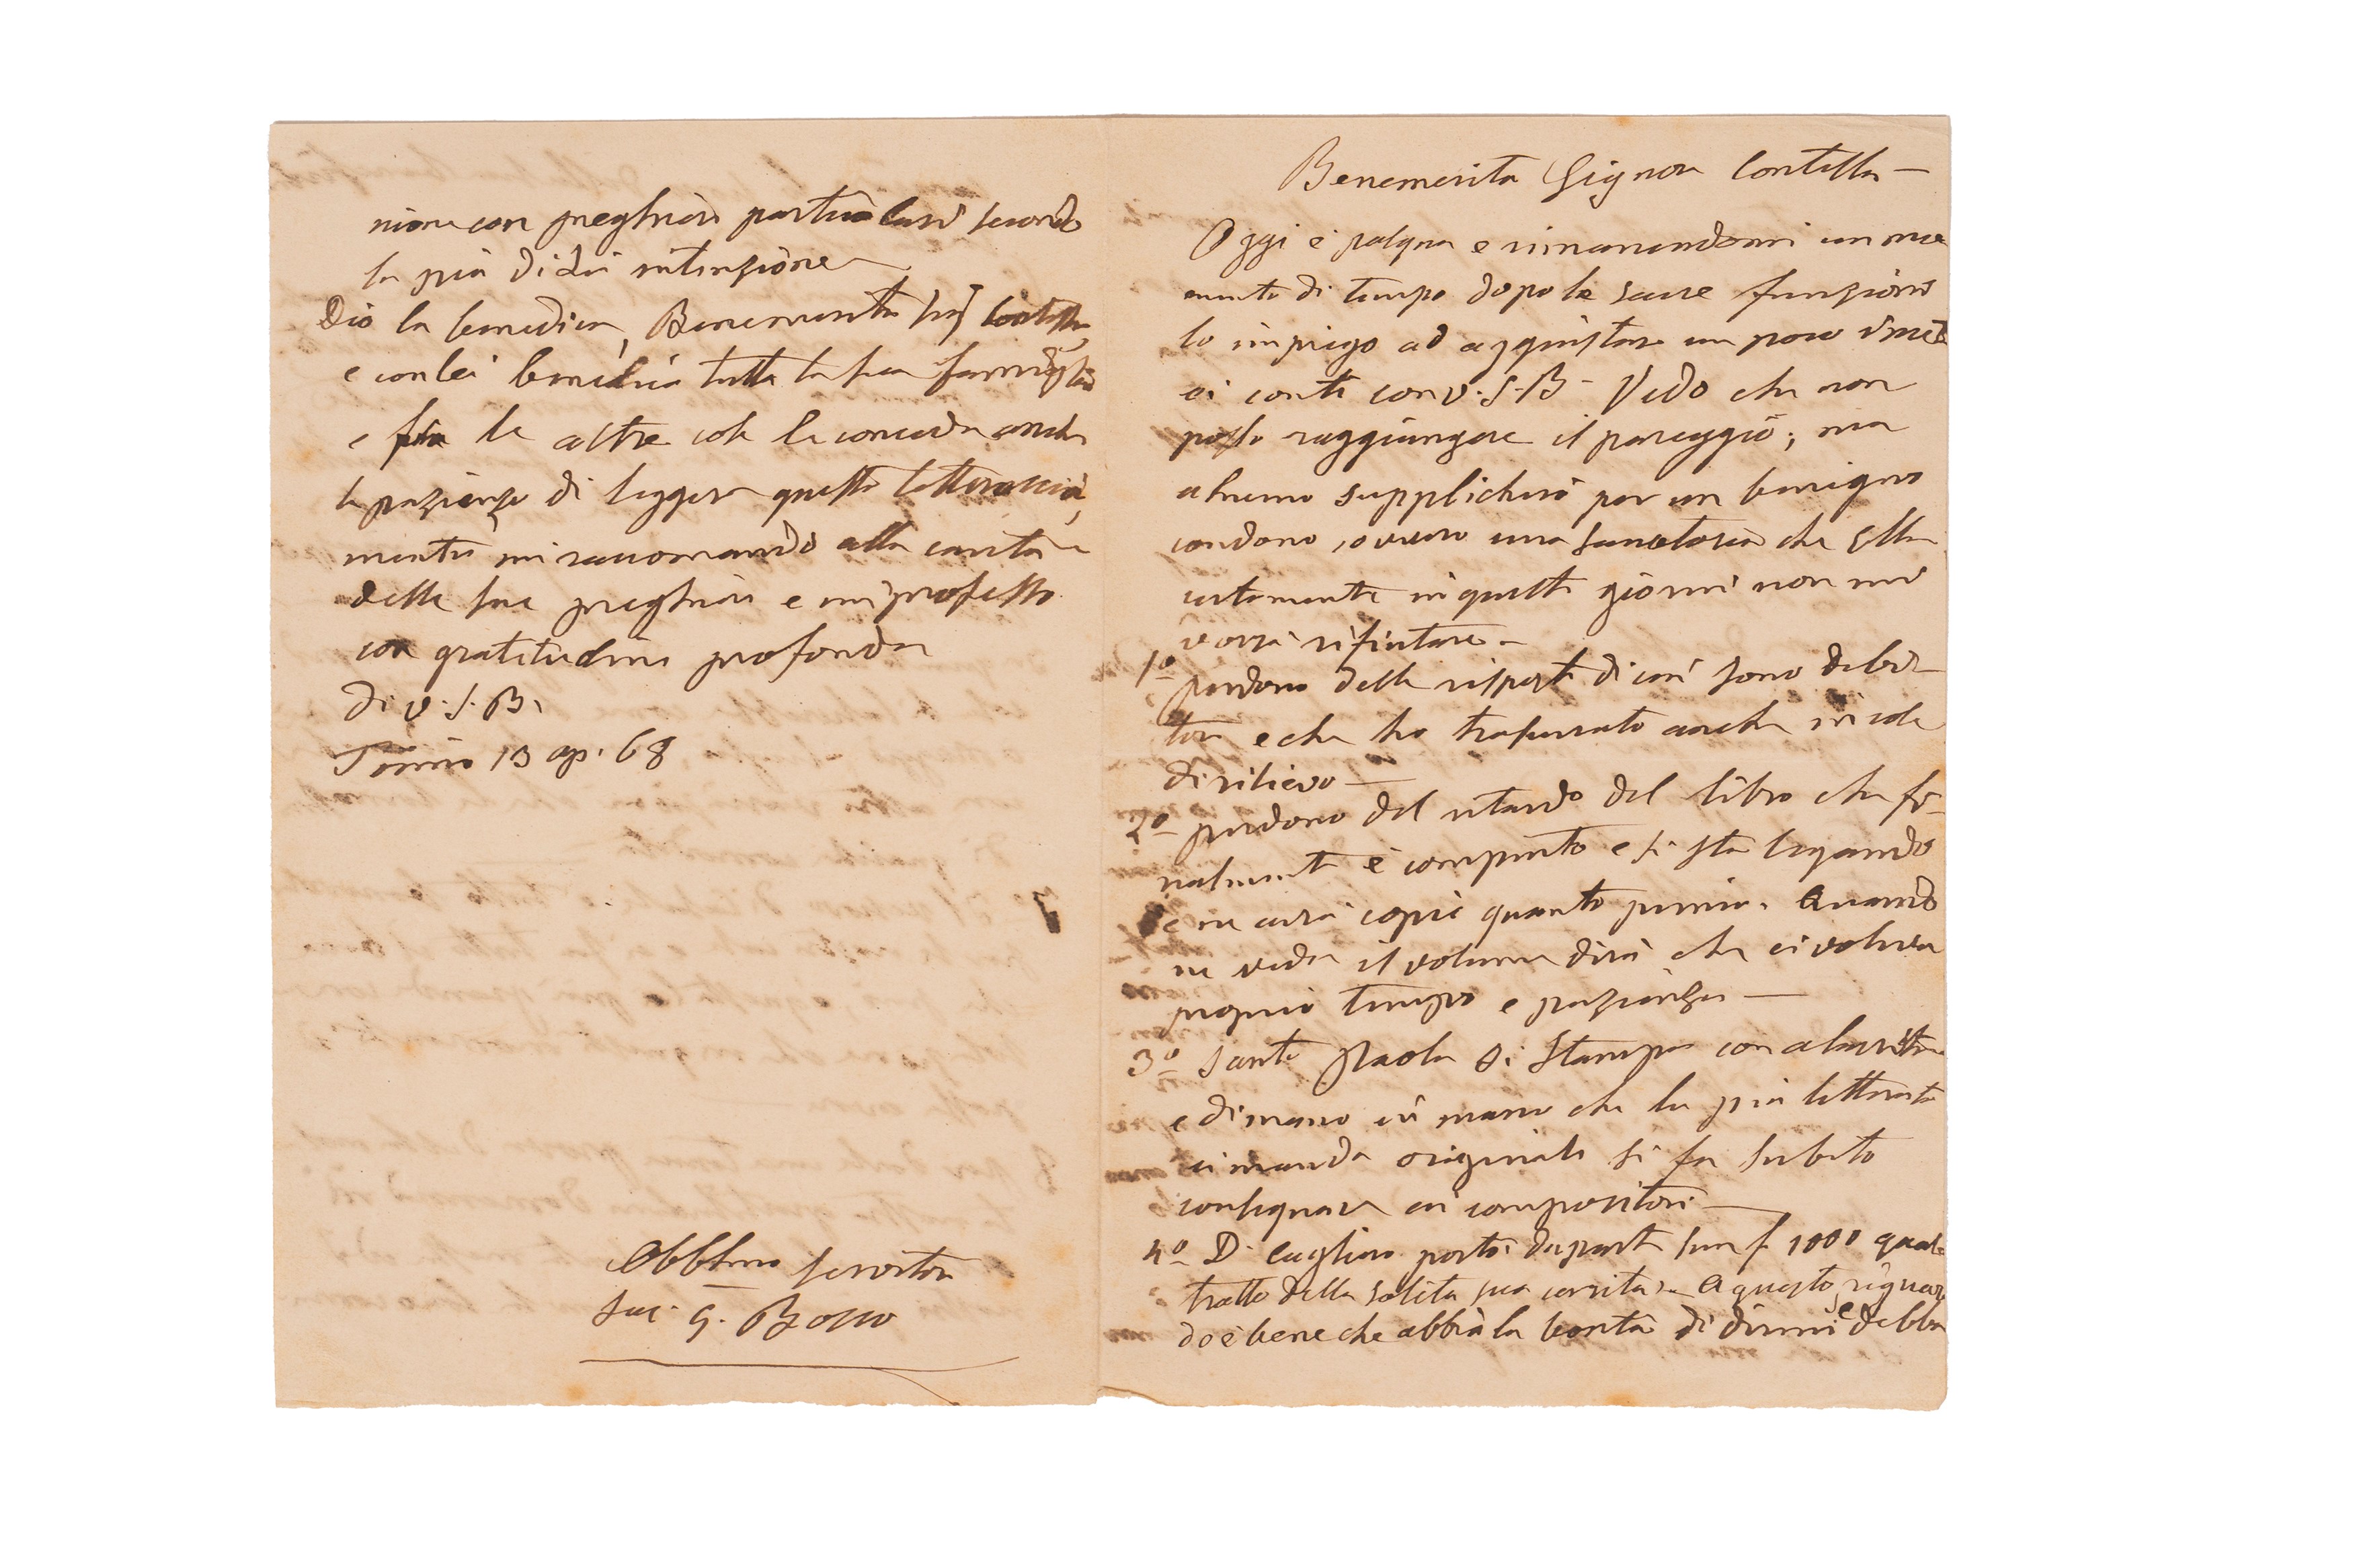 Benemerita Signora Contessa —
Oggi è pasqua e rimanendomi un mo
mento di tempo dopo le sacre funzioni
lo impiego ad aggiustare un poco i miei
conti con V. S. B. Vedo che non
posso raggiungere il pareggio; ma
almeno supplicherò per un benigno
condono, ovvero una sanatoria che Ella
certamente in questi giorni non mi
vorrà rifiutare —
1º perdono delle risposte di cui sono debi-
tore e che ho trascurato anche in cose
di rilievo —
2º perdono del ritardo del libro che fi-
nalmente è compiuto e si sta legando
e ne avrà copie quanto prima. Quando
ne veda il volume dirà che ci voleva
proprio tempo e pazienza —
3º Santa Paola si stampa con alacrità
e di mano in mano che la pia letterata
ci manda originali si fa subito
consegnare ai compositori —
4º D. Cagliero portò da parte sua f. 1000 quale
tratto della solita sua carità. A questo riguar
do è bene che abbia la bontà di dirmi se debba
nione con preghiere particolari secondo
la pia di Lei intenzione
Dio la benedica, Benemerita Sig Contessa,
e con lei benedica tutta la sua famiglia
e fra le altre cose le conceda anche
la pazienza di leggere questa letteraccia,
mentre mi raccomando alla carità
delle sue preghiere e mi professo
con gratitudine profonda
di V. S. B.
Torino 13 ap. 68
Obblmo servitore
Sac. G. Bosco